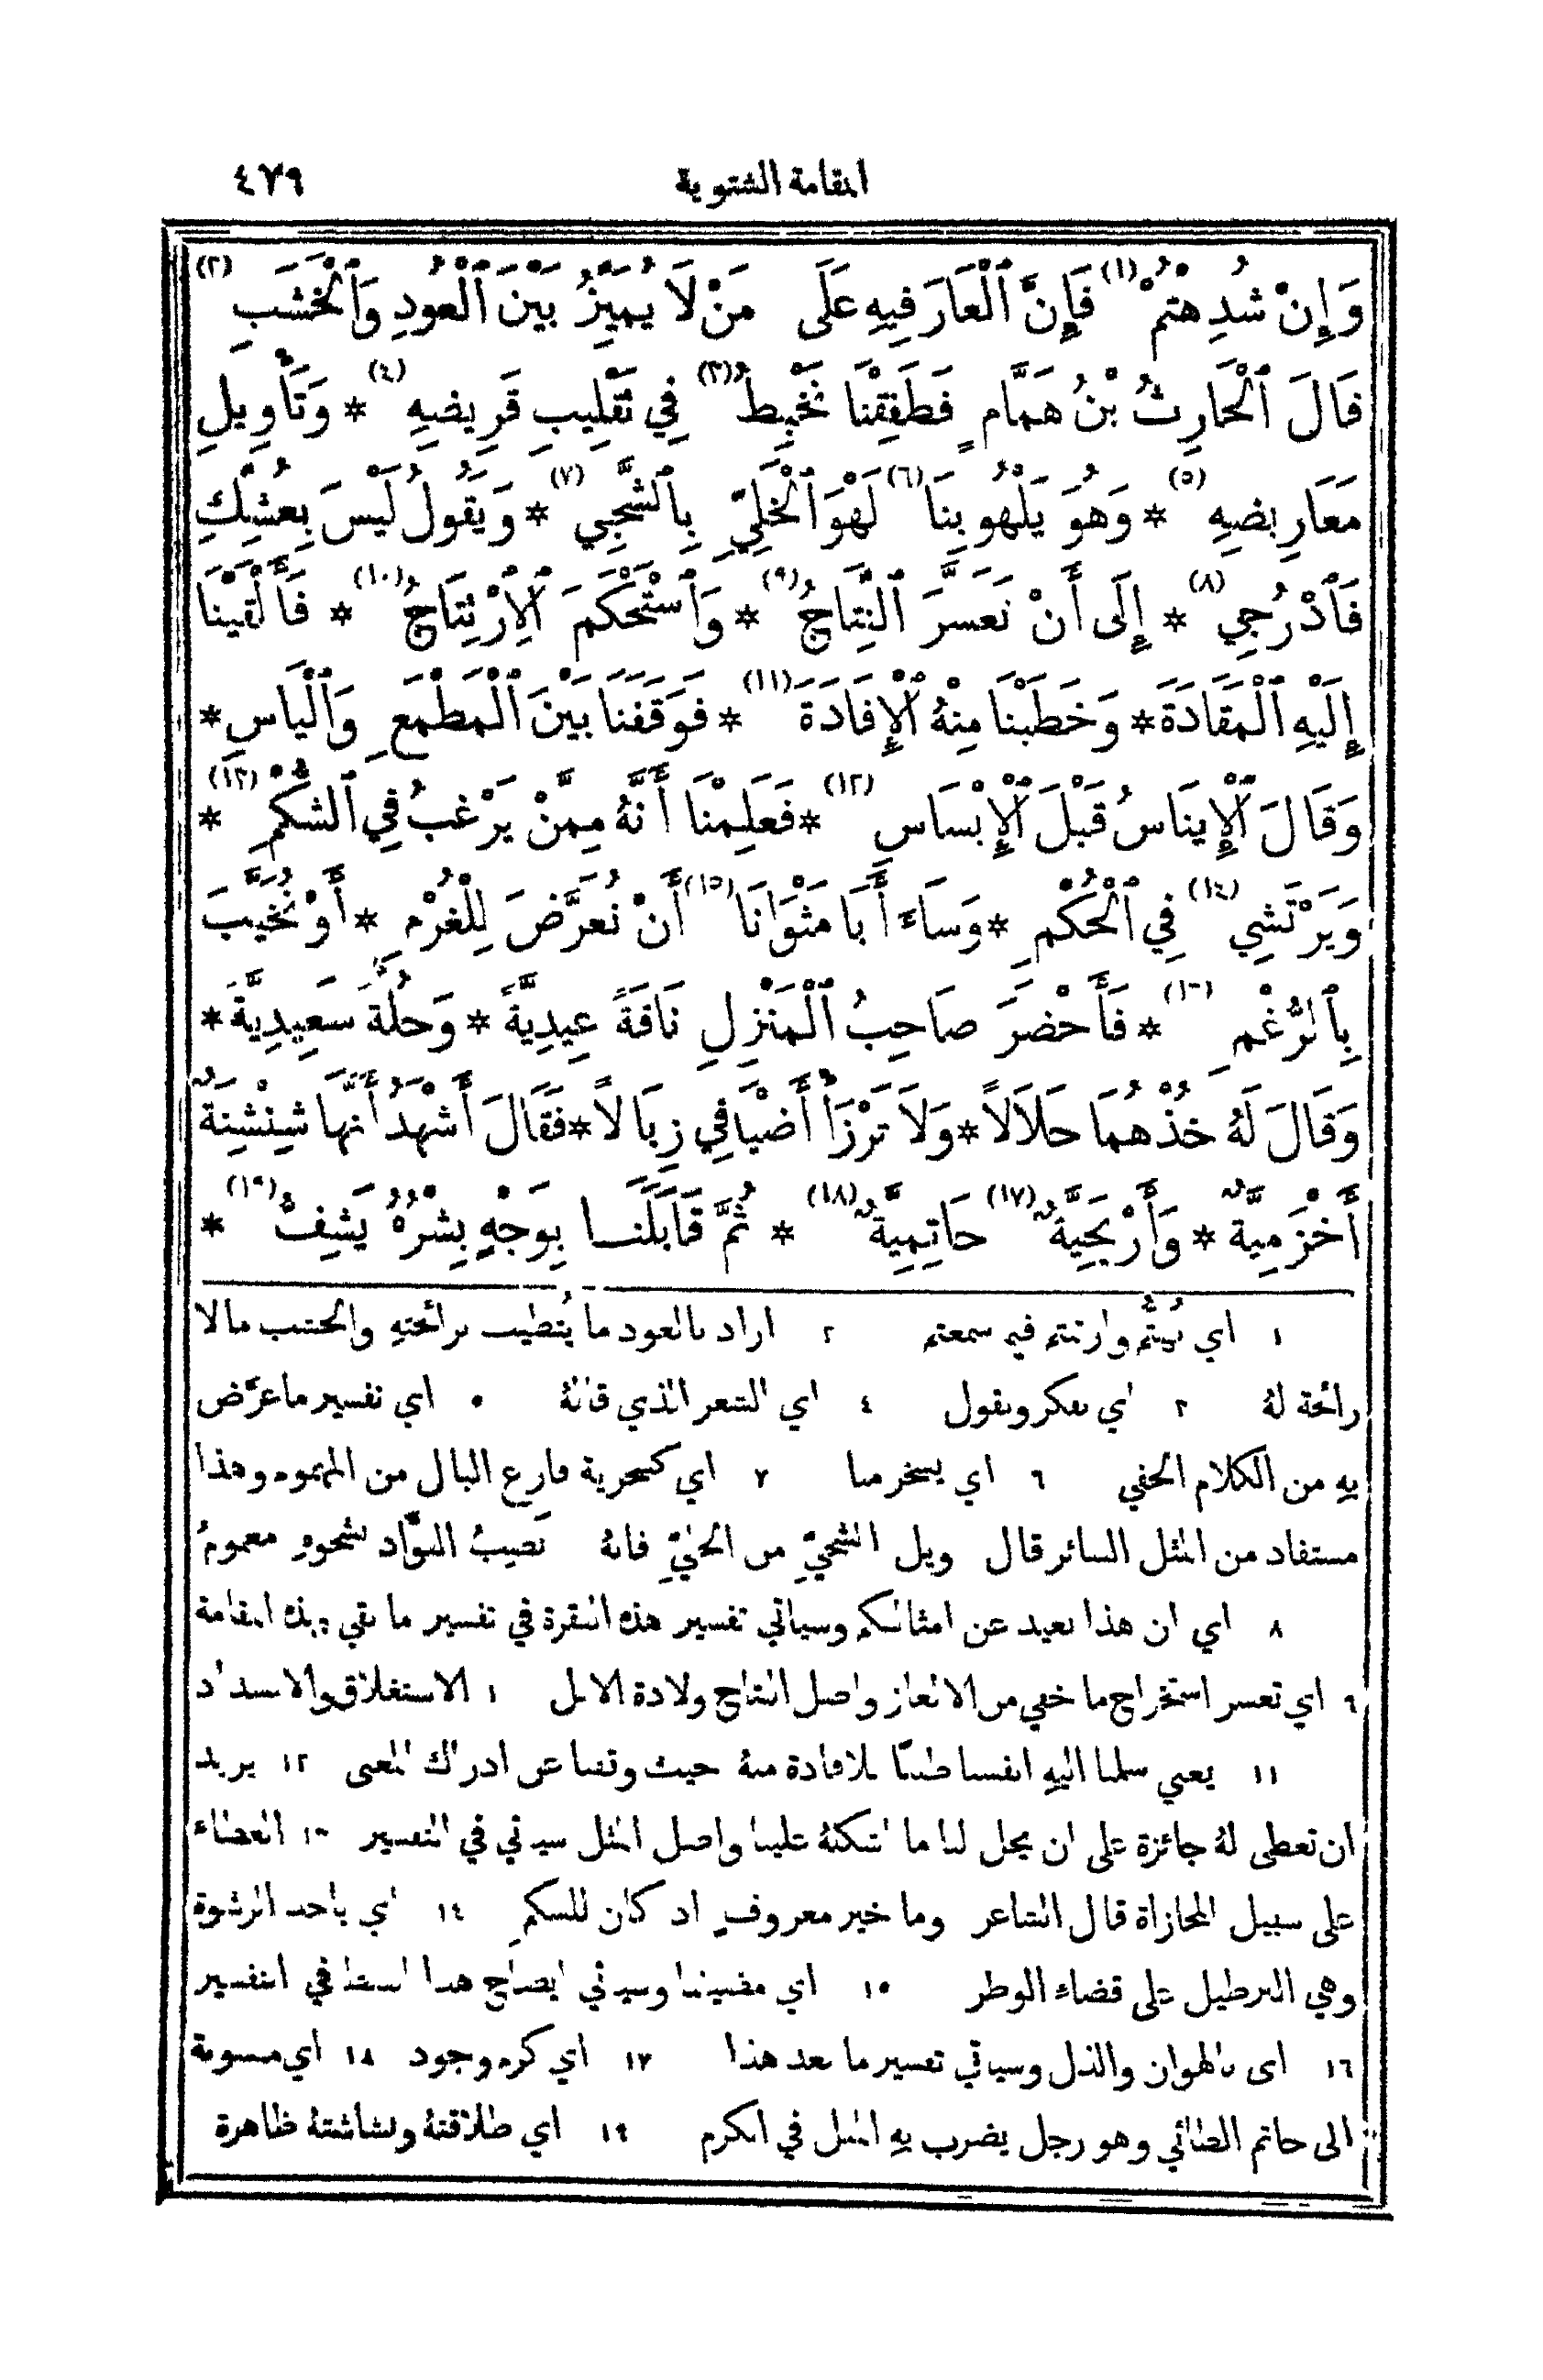 المقامة الشتوية ٤٧٩
وَإِنْ شُدِهْتُمْ (١) فَإِنَّ ٱلْعَارَ فِيهِ عَلَى مَنْ لَا يُمَيِّزُ بَيْنَ ٱلْعُودِ وَٱلْخَشَبِ (٢)
قَالَ ٱلْحَارِثُ بْنُ هَمَّامٍ فَطَفِقْنَا نَخْبِطُ (٣) فِي تَقْلِيبِ قَرِيضِهِ (٤) * وَتَأْوِيلِ
مَعَارِيضِهِ (٥) * وَهُوَ يَلْهُو بِنَا (٦) لَهْوَ ٱلْخَلِيِّ بِٱلشَّجِي (٧) * وَيَقُولُ لَيْسَ بِعُشِّكِ
فَٱدْرُجِي (٨) * إِلَى أَنْ تَعَسَّرَ ٱلنِّتَاجُ (٩) * وَٱسْتَحْكَمَ ٱلِٱرْتِتَاجُ (١٠) * فَأَلْقَيْنَا
إِلَيْهِ ٱلْمَقَادَةَ * وَخَطَبْنَا مِنْهُ ٱلْإِفَادَةَ (١١) * فَوَقَفَنَا بَيْنَ ٱلْمَطْمَعِ وَٱلْيَاسِ *
وَقَالَ ٱلْإِينَاسُ قَبْلَ ٱلْإِبْسَاسِ (١٢) * فَعَلِمْنَا أَنَّهُ مِمَّنْ يَرْغَبُ فِي ٱلشُّكْمِ (١٣) *
وَيَرْتَشِي (١٤) فِي ٱلْحُكْمِ * وَسَاءَ أَبَا مَثْوَانَا (١٥) أَنْ نُعَرَّضَ لِلْغُرْمِ * أَوْ نُخَيَّبَ
بِٱلرُّغْمِ (١٦) * فَأَحْضَرَ صَاحِبُ ٱلْمَنْزِلِ نَاقَةً عِيدِيَّةً * وَحُلَّةً سَعِيدِيَّةً *
وَقَالَ لَهُ خُذْهُمَا حَلَالًا * وَلَا تَرْزَأْ أَضْيَافِي زِبَالًا * فَقَالَ أَشْهَدُ أَنَّهَا شِنْشِنَةٌ
أَخْزَمِيَّةٌ * وَأَرْيَحِيَّةٌ (١٧) حَاتِمِيَّةٌ (١٨) * ثُمَّ قَابَلَنَا بِوَجْهٍ بِشْرُهُ يَشِفُّ (١٩) *
١ اي بُهِتُّم وارتبتم فيما سمعتم ٢ اراد بالعود ما يُتطيب برائحتهِ والخشب ما لا
رائحة لهُ ٣ اي نفكر ونقول ٤ اي الشعر الذي قالهُ ٥ اي تفسير ما عرَّض
بهِ من الكلام الخفي ٦ اي يسخر منا ٧ اي كسخرية فارغ البال من المهموم وهذا
مستفاد من المثل السائر قال ويل الشجيِّ من الخليِّ فانهُ نَصِيبُ الفؤَاد لشجوهِ مغمومُ
٨ اي ان هذا بعيد عن امثالكم وسياتي تفسير هذه الفقرة في تفسير ما بقي بهذه المقامة
٩ اي تعسر استخراج ما خفي من الالغاز واصل النتاج ولادة الابل ١٠ الاستغلاق والانسداد
١١ يعني سلمنا اليهِ انفسنا طلبًا للافادة منهُ حيث وقفنا عن ادراك المعنى ١٢ يريد
ان تعطى لهُ جائزة على ان يحل لنا ما اشكلهُ علينا واصل المثل سياتي في التفسير ١٣ العطاء
على سبيل المجازاة قال الشاعر وما خير معروفٍ اذا كان للشكمِ ١٤ اي ياخذ الرشوة
وهي البرطيل على قضاء الوطر ١٥ اي مضيفنا وسياتي ايضاح هذا اللفظ في التفسير
١٦ اي بالهوان والذل وسياتي تفسير ما بعد هذا ١٧ اي كرم وجود ١٨ اي منسوبة
الى حاتم الطائي وهو رجل يضرب بهِ المثل في الكرم ١٩ اي طلاقتهُ وبشاشتهُ ظاهرة